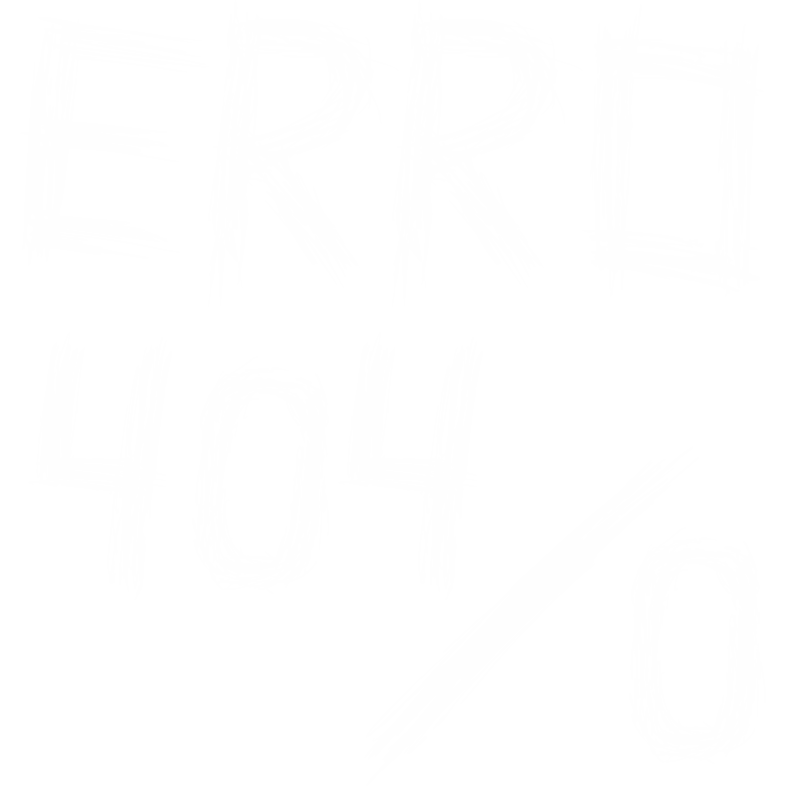 ERRO
404/0